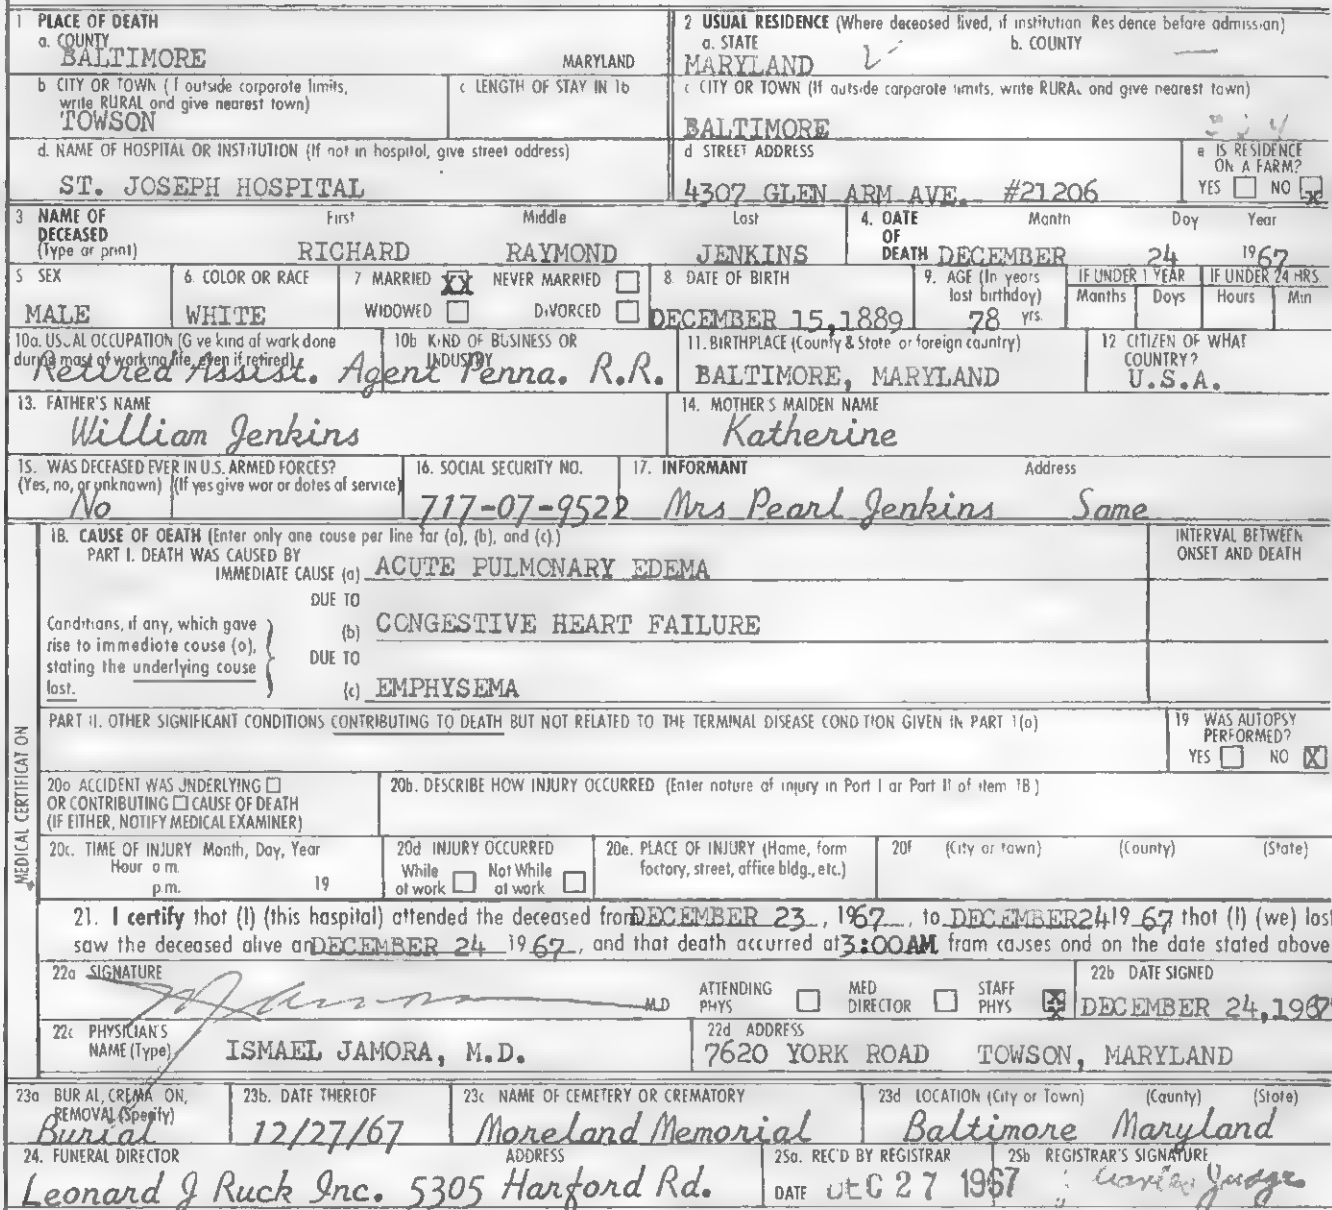 1 PLACE OF DEATH
a. COUNTY
BALTIMORE MARYLAND
2 USUAL RESIDENCE (Where deceased lived, if institution Residence before admission)
a. STATE b. COUNTY
MARYLAND —
b CITY OR TOWN (If outside corporate limits, write RURAL and give nearest town)
TOWSON
c LENGTH OF STAY IN 1b
c CITY OR TOWN (If outside corporate limits, write RURAL and give nearest town)
BALTIMORE
d. NAME OF HOSPITAL OR INSTITUTION (If not in hospital, give street address)
ST. JOSEPH HOSPITAL
d STREET ADDRESS
4307 GLEN ARM AVE. #21206
e IS RESIDENCE ON A FARM?
YES NO X
3 NAME OF DECEASED (Type or print)
First Middle Last
RICHARD RAYMOND JENKINS
4. DATE OF DEATH
Month Day Year
DECEMBER 24 1967
5 SEX
MALE
6. COLOR OR RACE
WHITE
7 MARRIED XX NEVER MARRIED
WIDOWED DIVORCED
8 DATE OF BIRTH
DECEMBER 15,1889
9. AGE (In years last birthday)
78 yrs.
IF UNDER 1 YEAR
Months Days
IF UNDER 24 HRS.
Hours Min
10a. USUAL OCCUPATION (Give kind of work done during most of working life, even if retired)
10b KIND OF BUSINESS OR INDUSTRY
Retired Assist. Agent Penna. R.R.
11. BIRTHPLACE (County & State or foreign country)
BALTIMORE, MARYLAND
12 CITIZEN OF WHAT COUNTRY?
U.S.A.
13. FATHER'S NAME
William Jenkins
14. MOTHER'S MAIDEN NAME
Katherine
15. WAS DECEASED EVER IN U.S. ARMED FORCES?
(Yes, no, or unknown) (If yes give war or dates of service)
No
16. SOCIAL SECURITY NO.
717-07-9522
17. INFORMANT Address
Mrs Pearl Jenkins Same
MEDICAL CERTIFICATION
18. CAUSE OF DEATH (Enter only one cause per line for (a), (b), and (c).)
PART I. DEATH WAS CAUSED BY
IMMEDIATE CAUSE (a) ACUTE PULMONARY EDEMA
INTERVAL BETWEEN ONSET AND DEATH
DUE TO
Conditions, if any, which gave rise to immediate cause (a), stating the underlying cause last.
(b) CONGESTIVE HEART FAILURE
DUE TO
(c) EMPHYSEMA
PART II. OTHER SIGNIFICANT CONDITIONS CONTRIBUTING TO DEATH BUT NOT RELATED TO THE TERMINAL DISEASE CONDITION GIVEN IN PART I(a)
19 WAS AUTOPSY PERFORMED?
YES NO X
20a ACCIDENT WAS UNDERLYING
OR CONTRIBUTING CAUSE OF DEATH
(IF EITHER, NOTIFY MEDICAL EXAMINER)
20b. DESCRIBE HOW INJURY OCCURRED (Enter nature of injury in Part I or Part II of item 18.)
20c. TIME OF INJURY Month, Day, Year
Hour a.m.
p.m. 19
20d INJURY OCCURRED
While at work Not While at work
20e. PLACE OF INJURY (Home, farm factory, street, office bldg., etc.)
20f (City or town) (County) (State)
21. I certify that (I) (this hospital) attended the deceased from DECEMBER 23, 1967, to DECEMBER24 1967 that (I) (we) last
saw the deceased alive on DECEMBER 24 1967, and that death occurred at 3:00AM from causes and on the date stated above
22a SIGNATURE
M.D
ATTENDING PHYS MED DIRECTOR STAFF PHYS X
22b DATE SIGNED
DECEMBER 24,1967
22c PHYSICIAN'S NAME (Type)
ISMAEL JAMORA, M.D.
22d ADDRESS
7620 YORK ROAD TOWSON, MARYLAND
23a BURIAL, CREMATION, REMOVAL (Specify)
Burial
23b. DATE THEREOF
12/27/67
23c NAME OF CEMETERY OR CREMATORY
Moreland Memorial
23d LOCATION (City or Town) (County) (State)
Baltimore Maryland
24. FUNERAL DIRECTOR ADDRESS
Leonard J Ruck Inc. 5305 Harford Rd.
25a. REC'D BY REGISTRAR
DATE DEC 27 1967
25b REGISTRAR'S SIGNATURE
Charles Judge